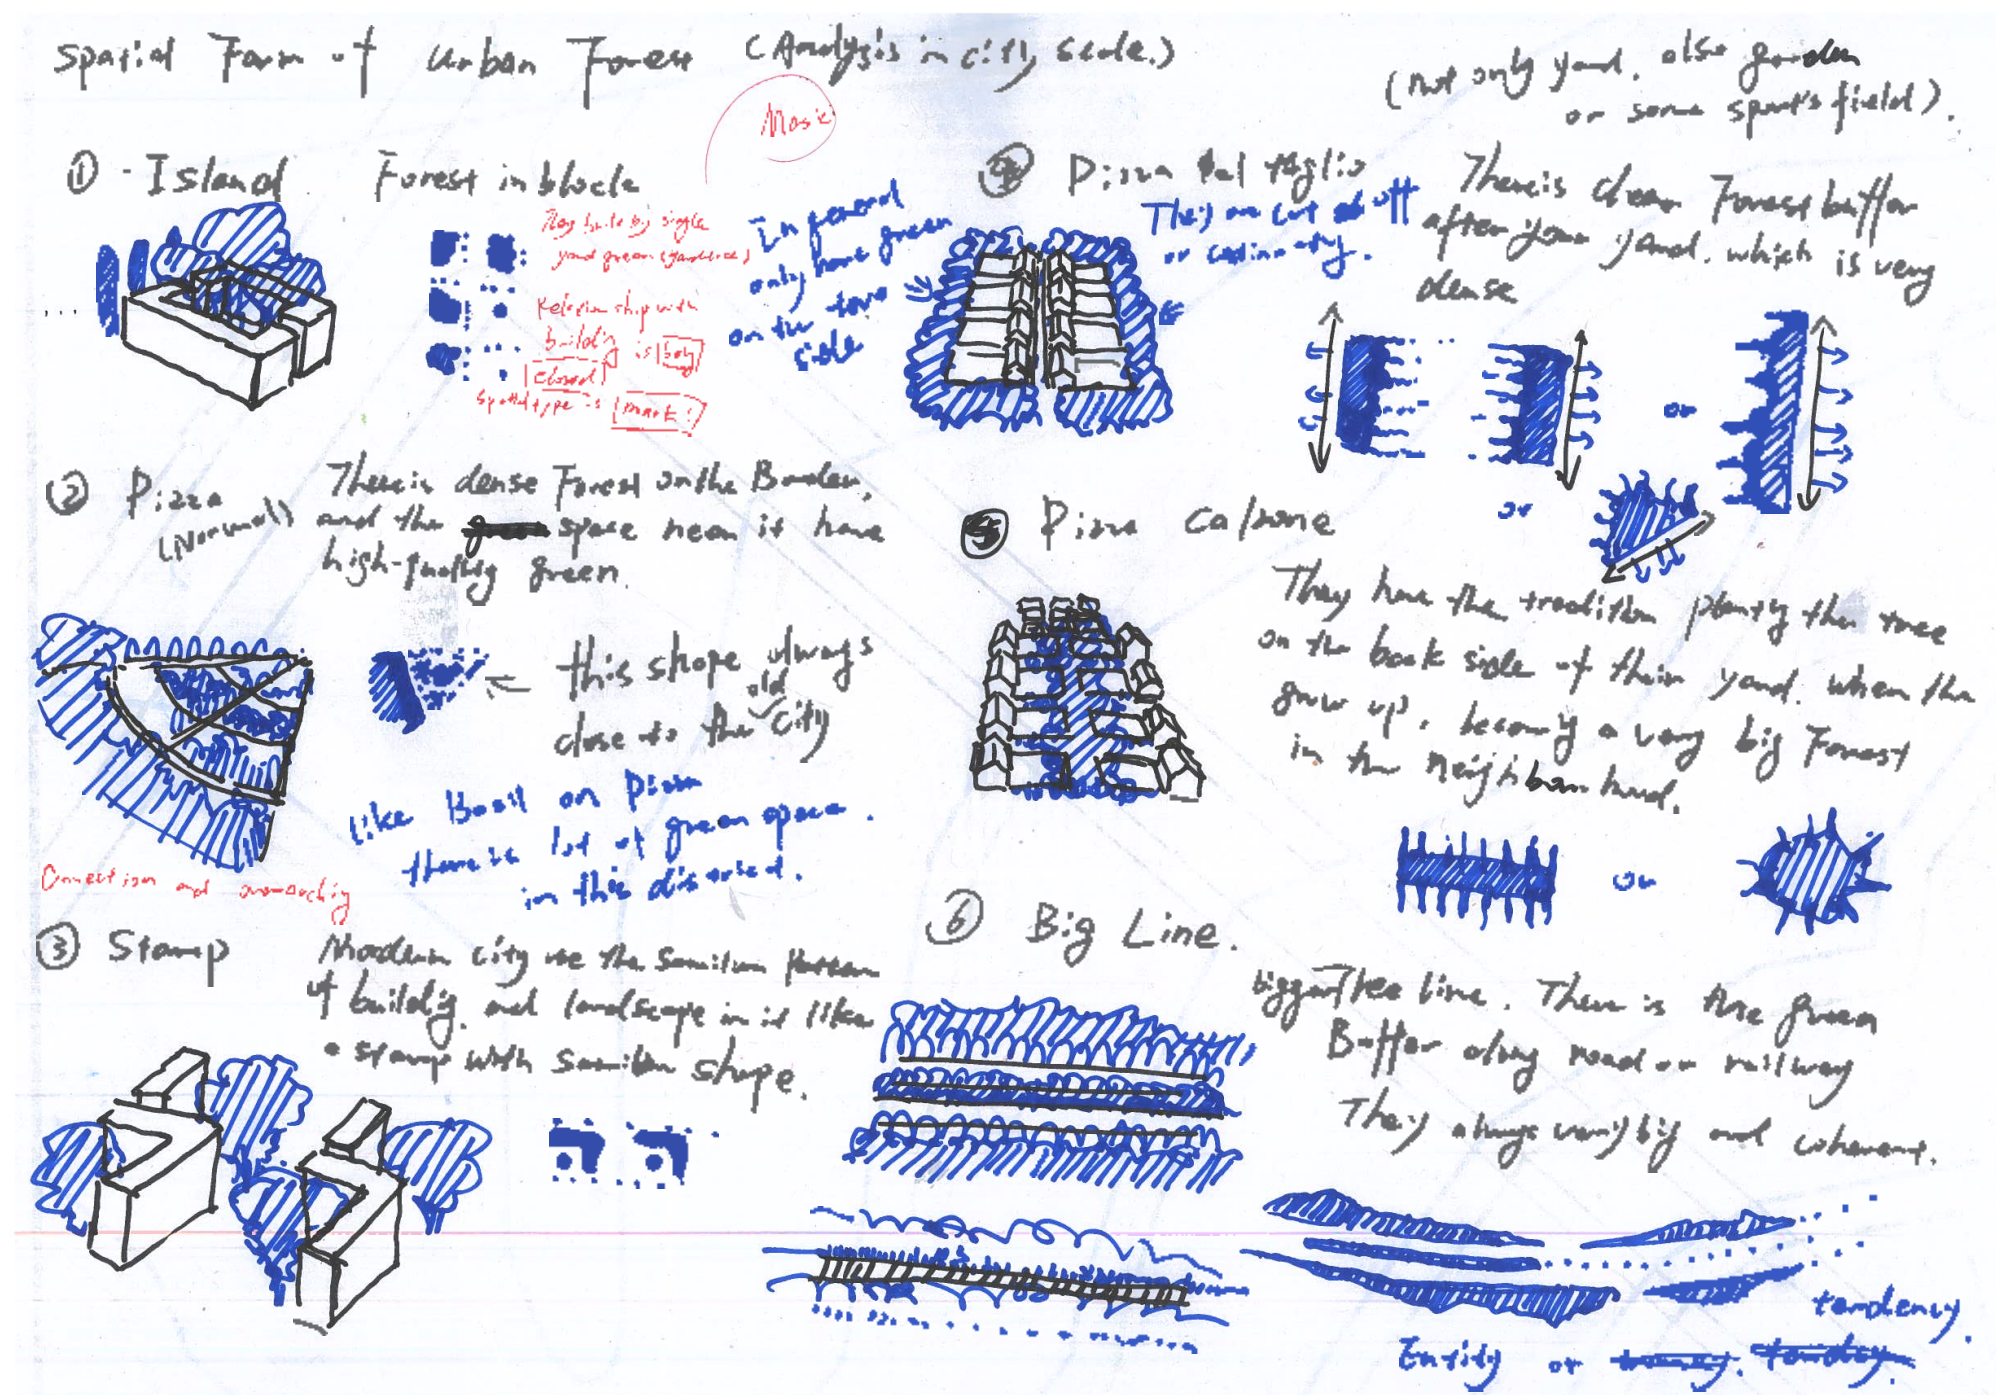 Spatial Form of Urban Forest (Analysis in city scale.)
(not only yard, also garden
or some sports field).
① - Island Forest in block
They build by single
yard green
Relation ship with
building is
closed
Spatial type is
In general
only have green
on the two
side
② Pizza
(Normal)
There is dense Forest on the Border,
and the space near it have
high-quality green.
this shape always
close to the old city
like Basil on pizza
there is lot of green space.
in this district.
Connection and
③ Stamp
Modern city use the Similar Pattern
of building and landscape in it like
a stamp with similar shape.
④ Pizza al taglio
They are cut off
There is clear Forest buffer
after your yard, which is very
dense
or
or
⑤ Pizza Calzone
They have the tradition planty the tree
on the back side of their yard. when the
grow up, becomy a very big Forest
in the neighborhood.
or
⑥ Big Line.
bigger Tree line. There is the green
Buffer along road or railway
They always very big and coherent.
tendency.
Entity or